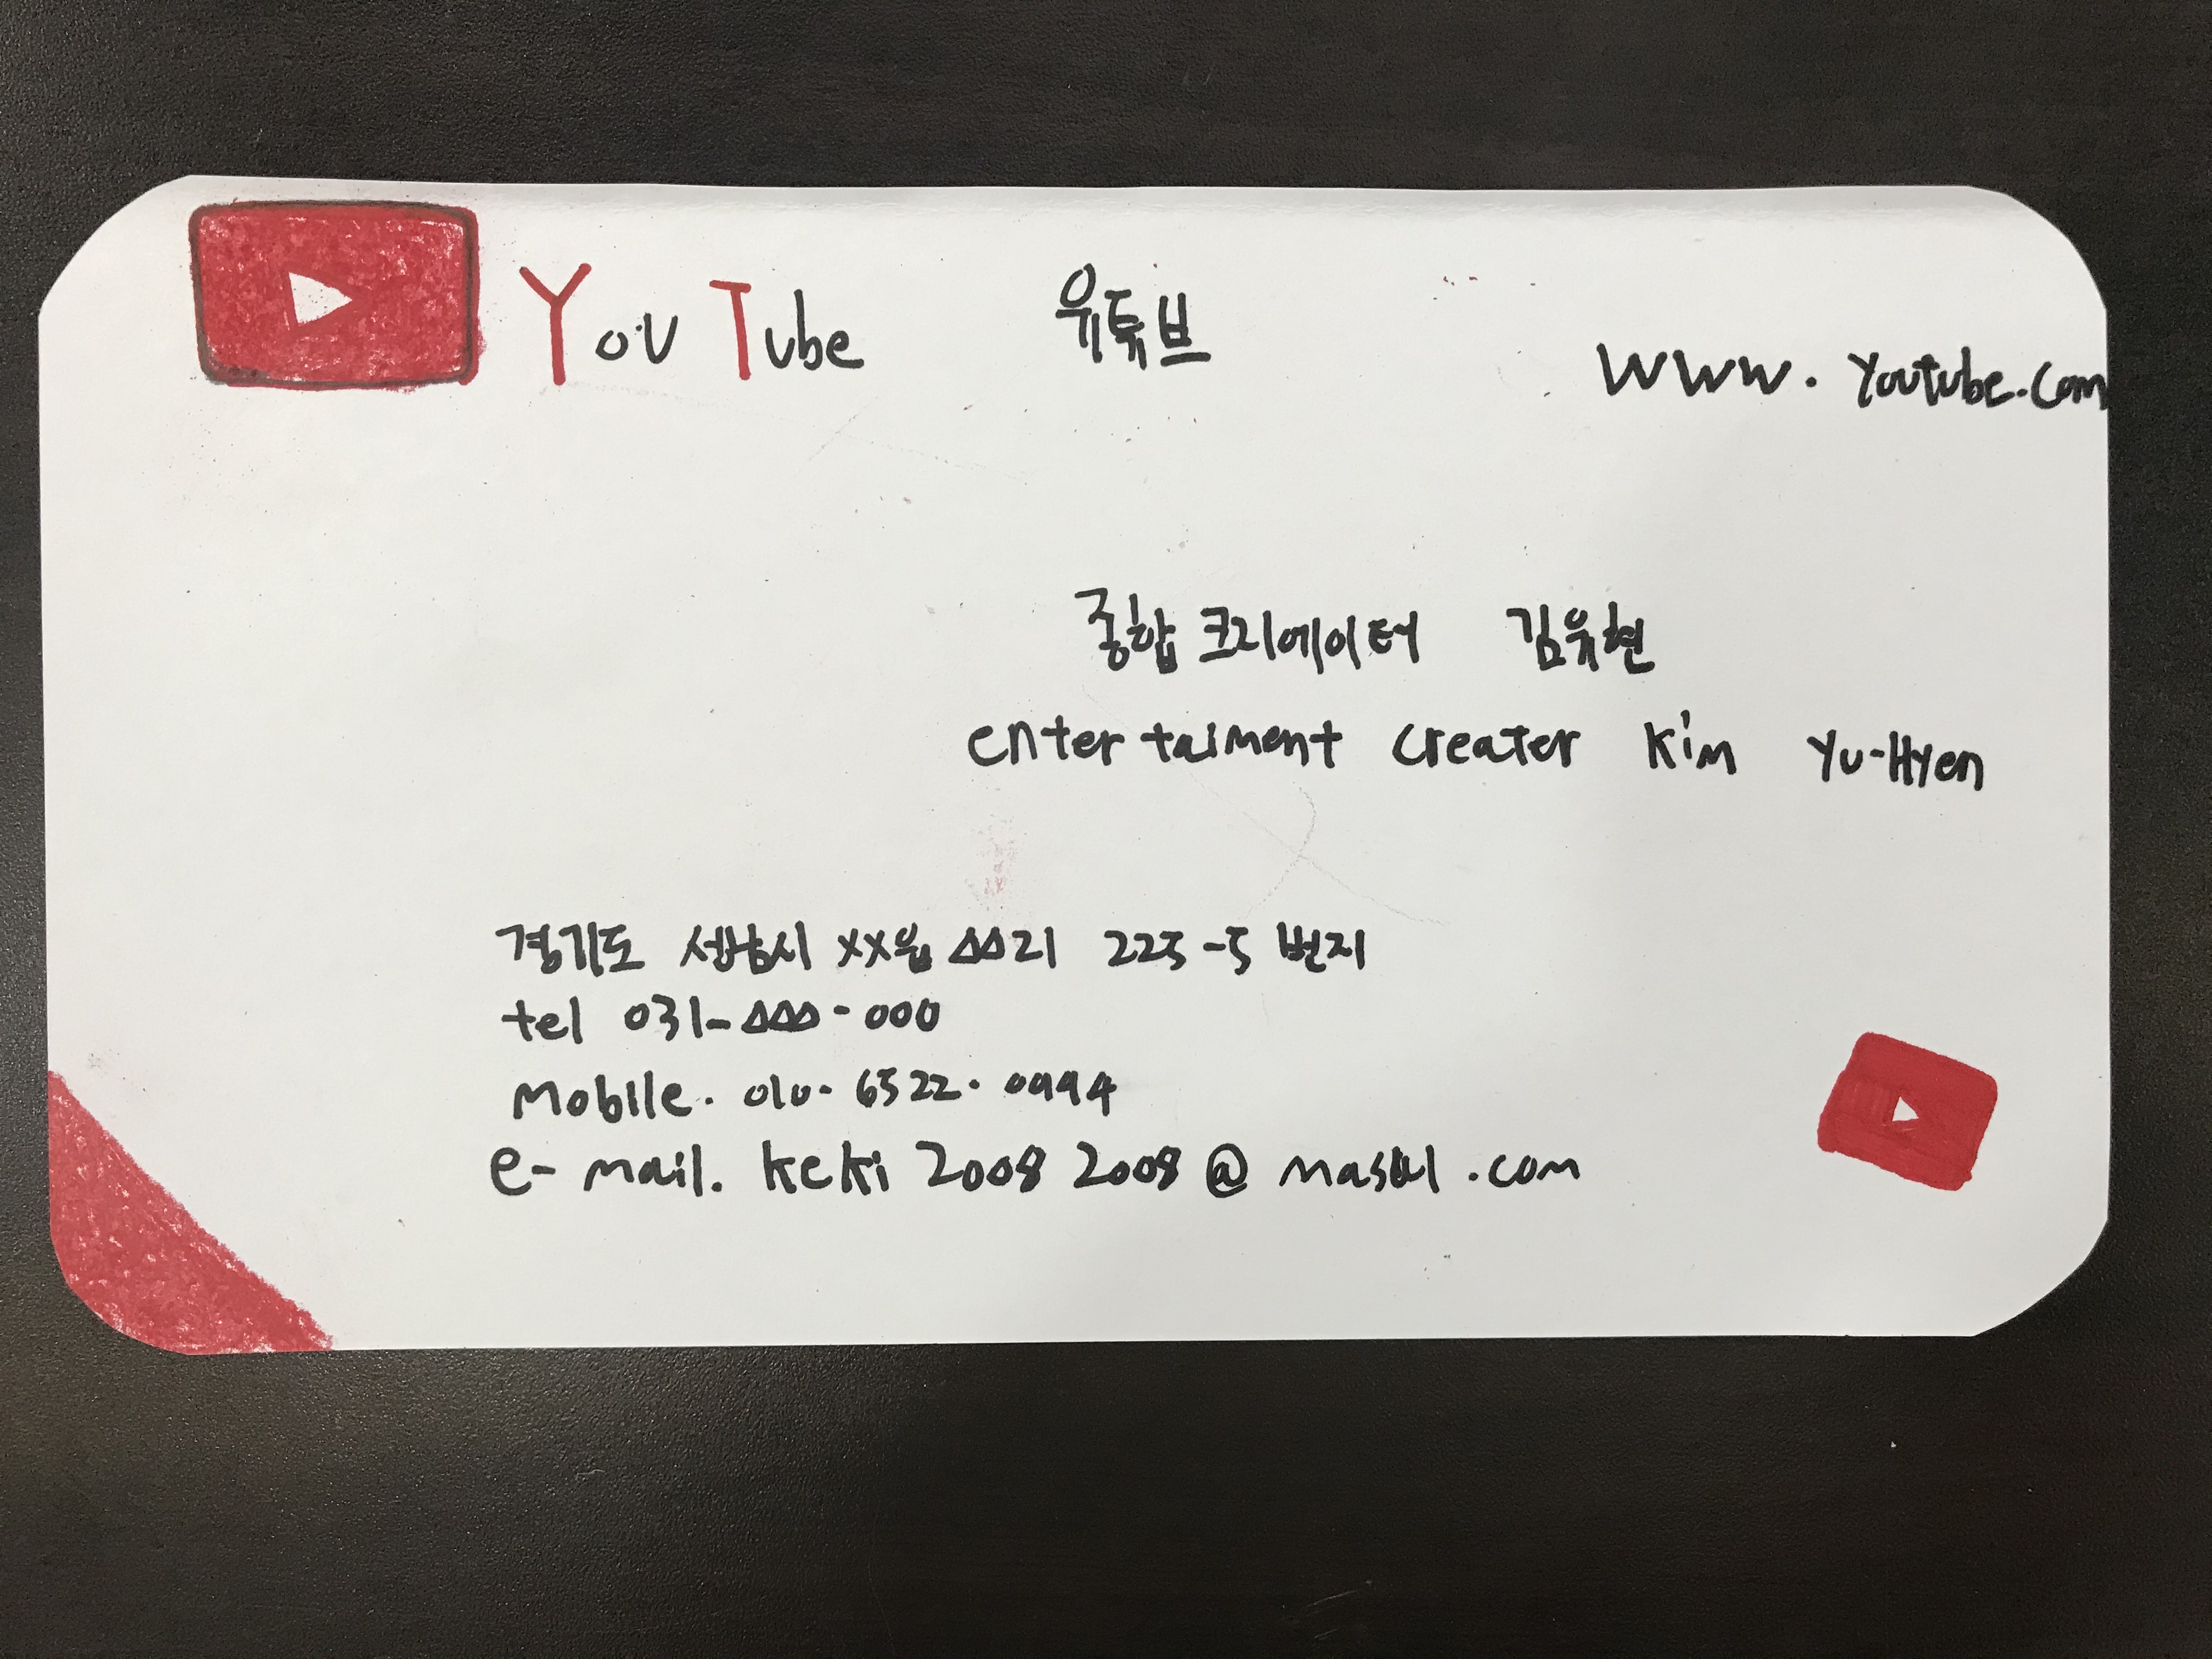 YouTube 유튜브
www.Youtube.com
종합 크리에이터 김유현
entertaiment creater Kim Yu-Hyen
경기도 성남시 XX읍 △△리 225-5 번지
tel 031-△△△-000
Mobile. 010-6522-0994
e-mail. keki 2008 2008 @ .com